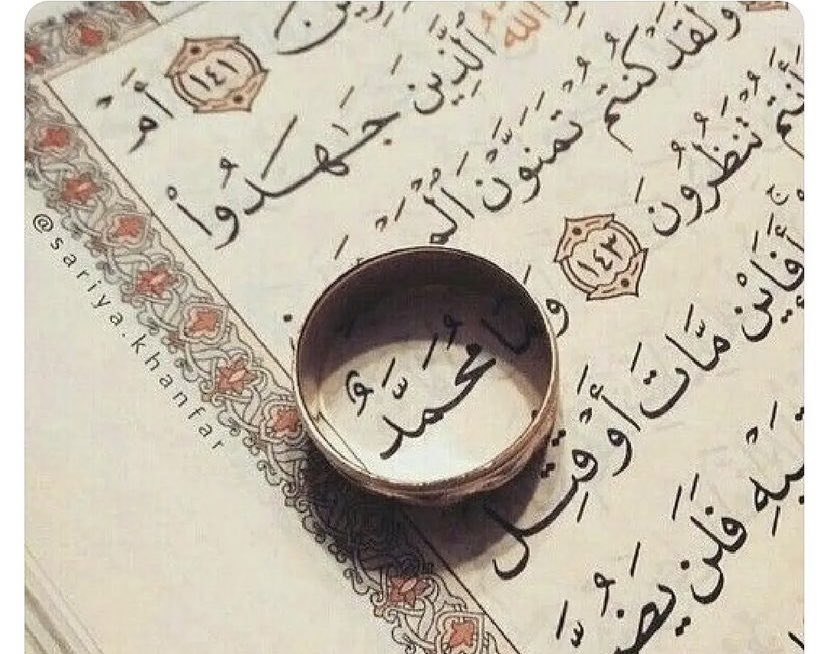 ١٤١ أَمْ
اللَّهُ الَّذِينَ جَـٰهَدُوا۟
وَلَقَدْ كُنتُمْ تَمَنَّوْنَ الْمَـ
أَنتُمْ تَنظُرُونَ ١٤٣ وَمَا مُحَمَّدٌ
أَفَإِي۟ن مَّاتَ أَوْ قُتِلَ
ـبَيْهِ فَلَن يَضُـ
@sariya.khanfar